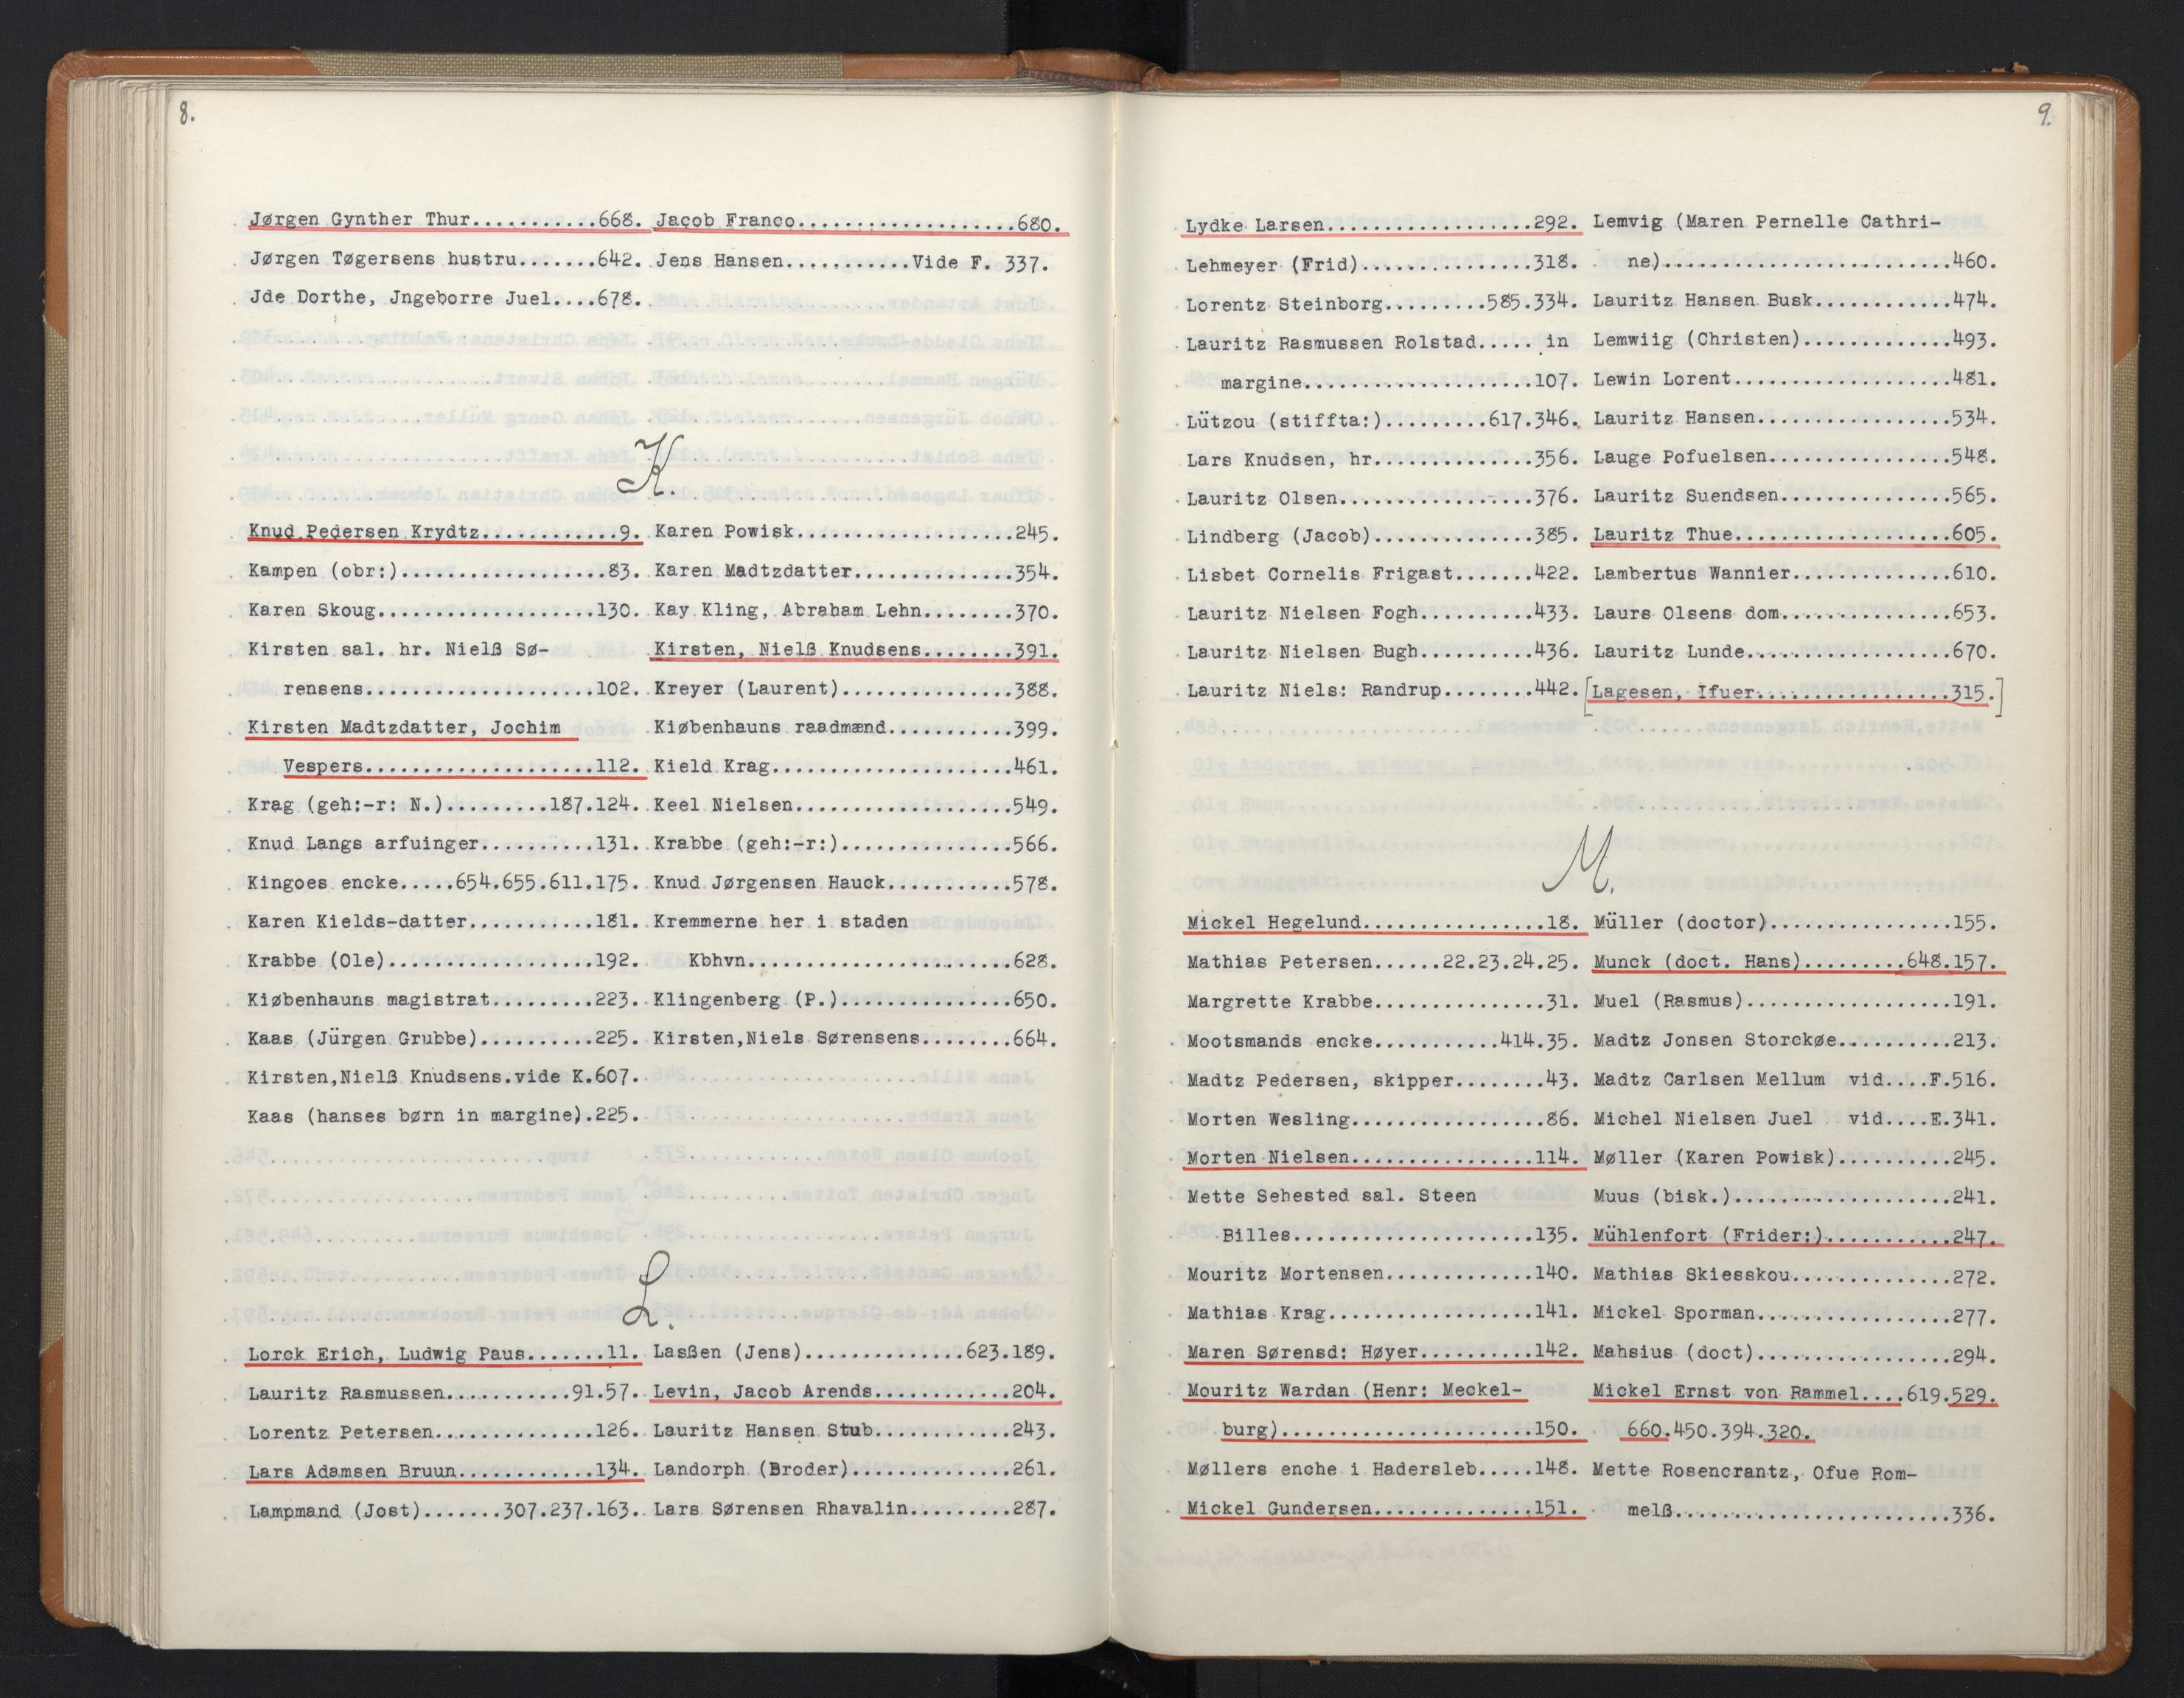 8.
Jørgen Gynther Thur...........668.
Jørgen Tøgersens hustru.......642.
Jde Dorthe, Jngeborre Juel....678.
Jacob Franco...................680.
Jens Hansen...........Vide F. 337.
K.
Knud Pedersen Krydtz............9.
Kampen (obr:)..................83.
Karen Skoug...................130.
Kirsten sal. hr. Nielß Sø-
rensens....................102.
Kirsten Madtzdatter, Jochim
Vespers....................112.
Krag (geh:-r: N.).........187.124.
Knud Langs arfuinger..........131.
Kingoes encke.....654.655.611.175.
Karen Kields-datter...........181.
Krabbe (Ole)..................192.
Kiøbenhauns magistrat.........223.
Kaas (Jürgen Grubbe)..........225.
Kirsten,Nielß Knudsens.vide K.607.
Kaas (hanses børn in margine).225.
Karen Powisk...................245.
Karen Madtzdatter..............354.
Kay Kling, Abraham Lehn........370.
Kirsten, Nielß Knudsens........391.
Kreyer (Laurent)...............388.
Kiøbenhauns raadmænd...........399.
Kield Krag.....................461.
Keel Nielsen...................549.
Krabbe (geh:-r:)...............566.
Knud Jørgensen Hauck...........578.
Kremmerne her i staden
Kbhvn.......................628.
Klingenberg (P.)...............650.
Kirsten,Niels Sørensens........664.
L.
Lorck Erich, Ludwig Paus.......11.
Lauritz Rasmussen...........91.57.
Lorentz Petersen..............126.
Lars Adamsen Bruun............134.
Lampmand (Jost).......307.237.163.
Lasßen (Jens)..............623.189.
Levin, Jacob Arends............204.
Lauritz Hansen Stub............243.
Landorph (Broder)..............261.
Lars Sørensen Rhavalin.........287.
9.
Lydke Larsen..................292.
Lehmeyer (Frid)...............318.
Lorentz Steinborg.........585.334.
Lauritz Rasmussen Rolstad..... in
margine....................107.
Lützou (stiffta:).........617.346.
Lars Knudsen, hr..............356.
Lauritz Olsen.................376.
Lindberg (Jacob)..............385.
Lisbet Cornelis Frigast.......422.
Lauritz Nielsen Fogh..........433.
Lauritz Nielsen Bugh..........436.
Lauritz Niels: Randrup........442.
Lemvig (Maren Pernelle Cathri-
ne).........................460.
Lauritz Hansen Busk............474.
Lemwiig (Christen).............493.
Lewin Lorent...................481.
Lauritz Hansen.................534.
Lauge Pofuelsen................548.
Lauritz Suendsen...............565.
Lauritz Thue...................605.
Lambertus Wannier..............610.
Laurs Olsens dom...............653.
Lauritz Lunde..................670.
[Lagesen, Ifuer.................315.]
M.
Mickel Hegelund................18.
Mathias Petersen......22.23.24.25.
Margrette Krabbe...............31.
Mootsmands encke...........414.35.
Madtz Pedersen, skipper........43.
Morten Wesling.................86.
Morten Nielsen................114.
Mette Sehested sal. Steen
Billes.....................135.
Mouritz Mortensen.............140.
Mathias Krag..................141.
Maren Sørensd: Høyer..........142.
Mouritz Wardan (Henr: Meckel-
burg)......................150.
Møllers enche i Hadersleb.....148.
Mickel Gundersen..............151.
Müller (doctor)................155.
Munck (doct. Hans).........648.157.
Muel (Rasmus)..................191.
Madtz Jonsen Storckøe..........213.
Madtz Carlsen Mellum vid....F.516.
Michel Nielsen Juel vid....E.341.
Møller (Karen Powisk)..........245.
Muus (bisk.)...................241.
Mühlenfort (Frider:)...........247.
Mathias Skiesskou..............272.
Mickel Sporman.................277.
Mahsius (doct).................294.
Mickel Ernst von Rammel....619.529.
660.450.394.320.
Mette Rosencrantz, Ofue Rom-
melß........................336.